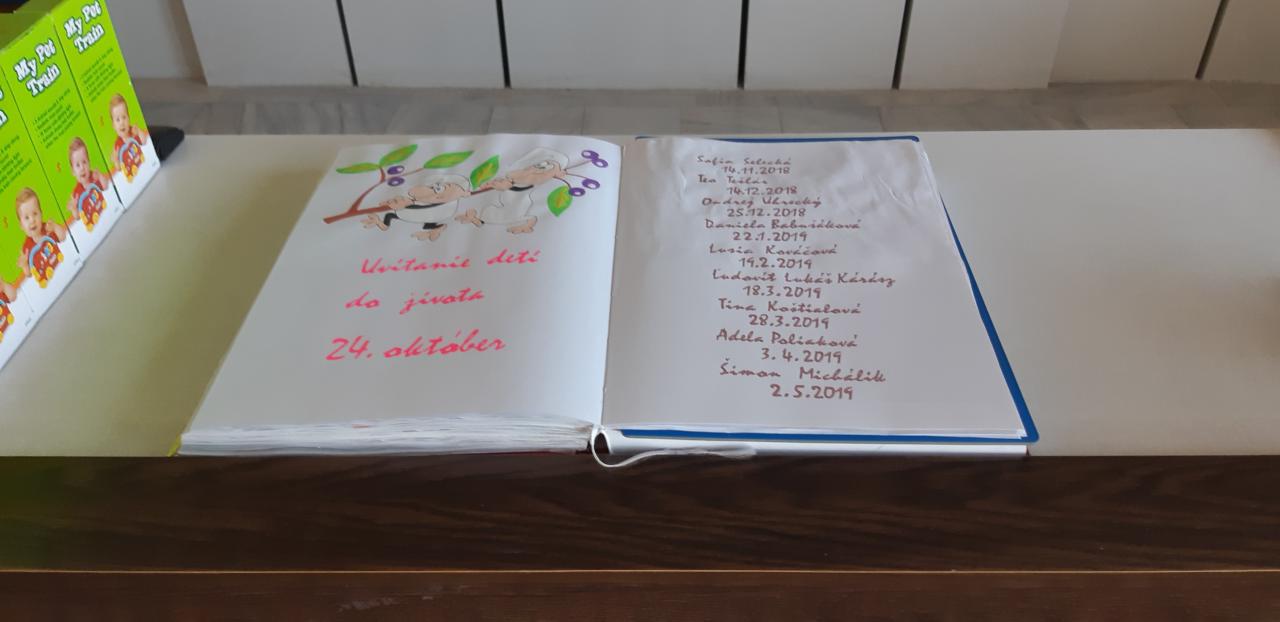 My Pet
Train
My Pet
Train
Uvítanie detí
do života
24. október
Sofia Selecká
14.11.2018
Tea Tešlár
14.12.2018
Ondrej Uhrecký
25.12.2018
Daniela Babušáková
22.1.2019
Lusia Kováčová
19.2.2019
Ľudovít Lukáš Kárász
18.3.2019
Tina Koštialová
28.3.2019
Adela Poliaková
3.4.2019
Šimon Michálik
2.5.2019